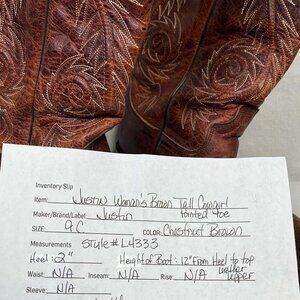 Inventory Slip
Item: Justin Woman's Brown Tall Cowgirl
Pointed toe
Maker/Brand/Label Justin
SIZE 9C COLOR Chestnut Brown
Measurements Style# L4333
Heel: 2" Height of Boot: 12" From Heel to top
leather upper
Waist: N/A Inseam: N/A Rise: N/A
Sleeve: N/A